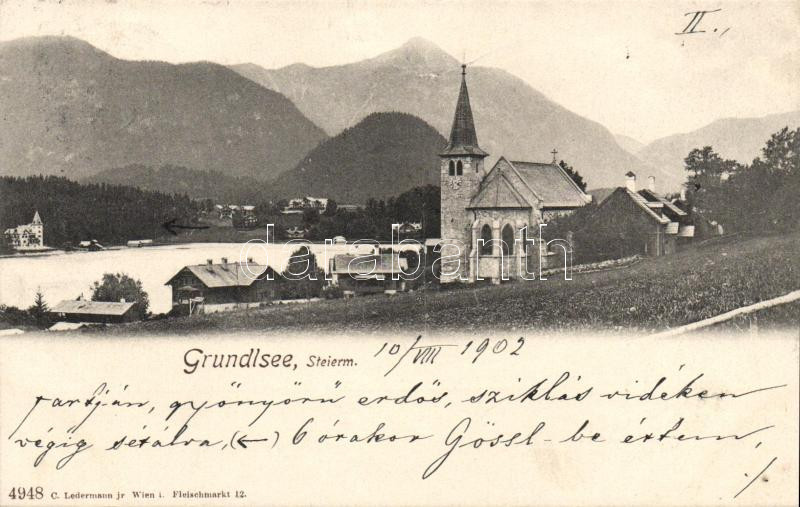 II.,
darabanth
Grundlsee, Steierm. 10/VIII 1902
partján, gyönyörű erdős, sziklás vidéken
végig sétálva, (←) 6 órakor Gössl-be értem,
4948 C. Ledermann jr Wien i. Fleischmarkt 12.